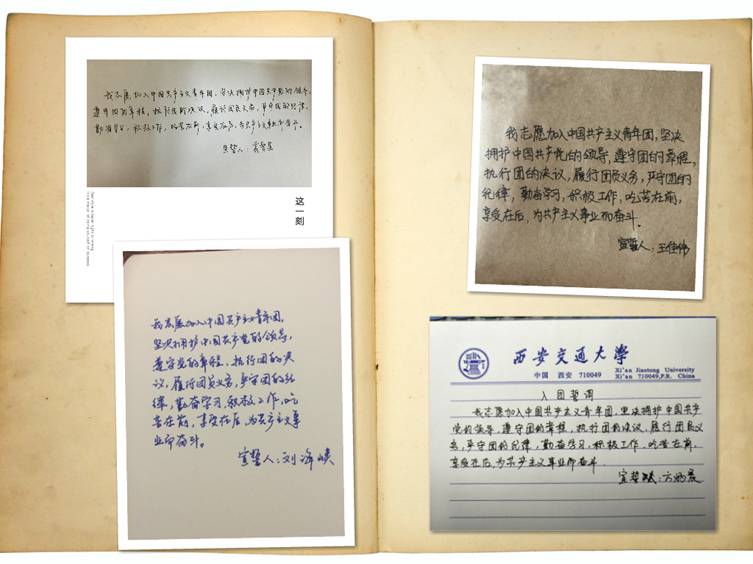 我志愿加入中国共产主义青年团，坚决拥护中国共产党的领导，
遵守团的章程，执行团的决议，履行团员义务，严守团的纪律，
勤奋学习，积极工作，吃苦在前，享受在后，为共产主义事业而奋斗。
宣誓人：
这一刻
我志愿加入中国共产主义青年团，
坚决拥护中国共产党的领导，
遵守党的章程，执行团的决
议，履行团员义务，严守团的纪
律，勤奋学习，积极工作，吃
苦在前，享受在后，为共产主义事
业而奋斗。
宣誓人：刘海峡
我志愿加入中国共产主义青年团，坚决
拥护中国共产党的领导，遵守团的章程，
执行团的决议，履行团员义务，严守团的
纪律，勤奋学习，积极工作，吃苦在前，
享受在后，为共产主义事业而奋斗。
宣誓人：王佳伟
西安交通大学
中国 西安 710049 Xi'an Jiaotong University
Xi'an 710049,P.R. China
入团誓词
我志愿加入中国共产主义青年团，坚决拥护中国共产
党的领导，遵守团的章程，执行团的决议，履行团员义
务，严守团的纪律，勤奋学习，积极工作，吃苦在前，
享受在后，为共产主义事业而奋斗
宣誓人：方